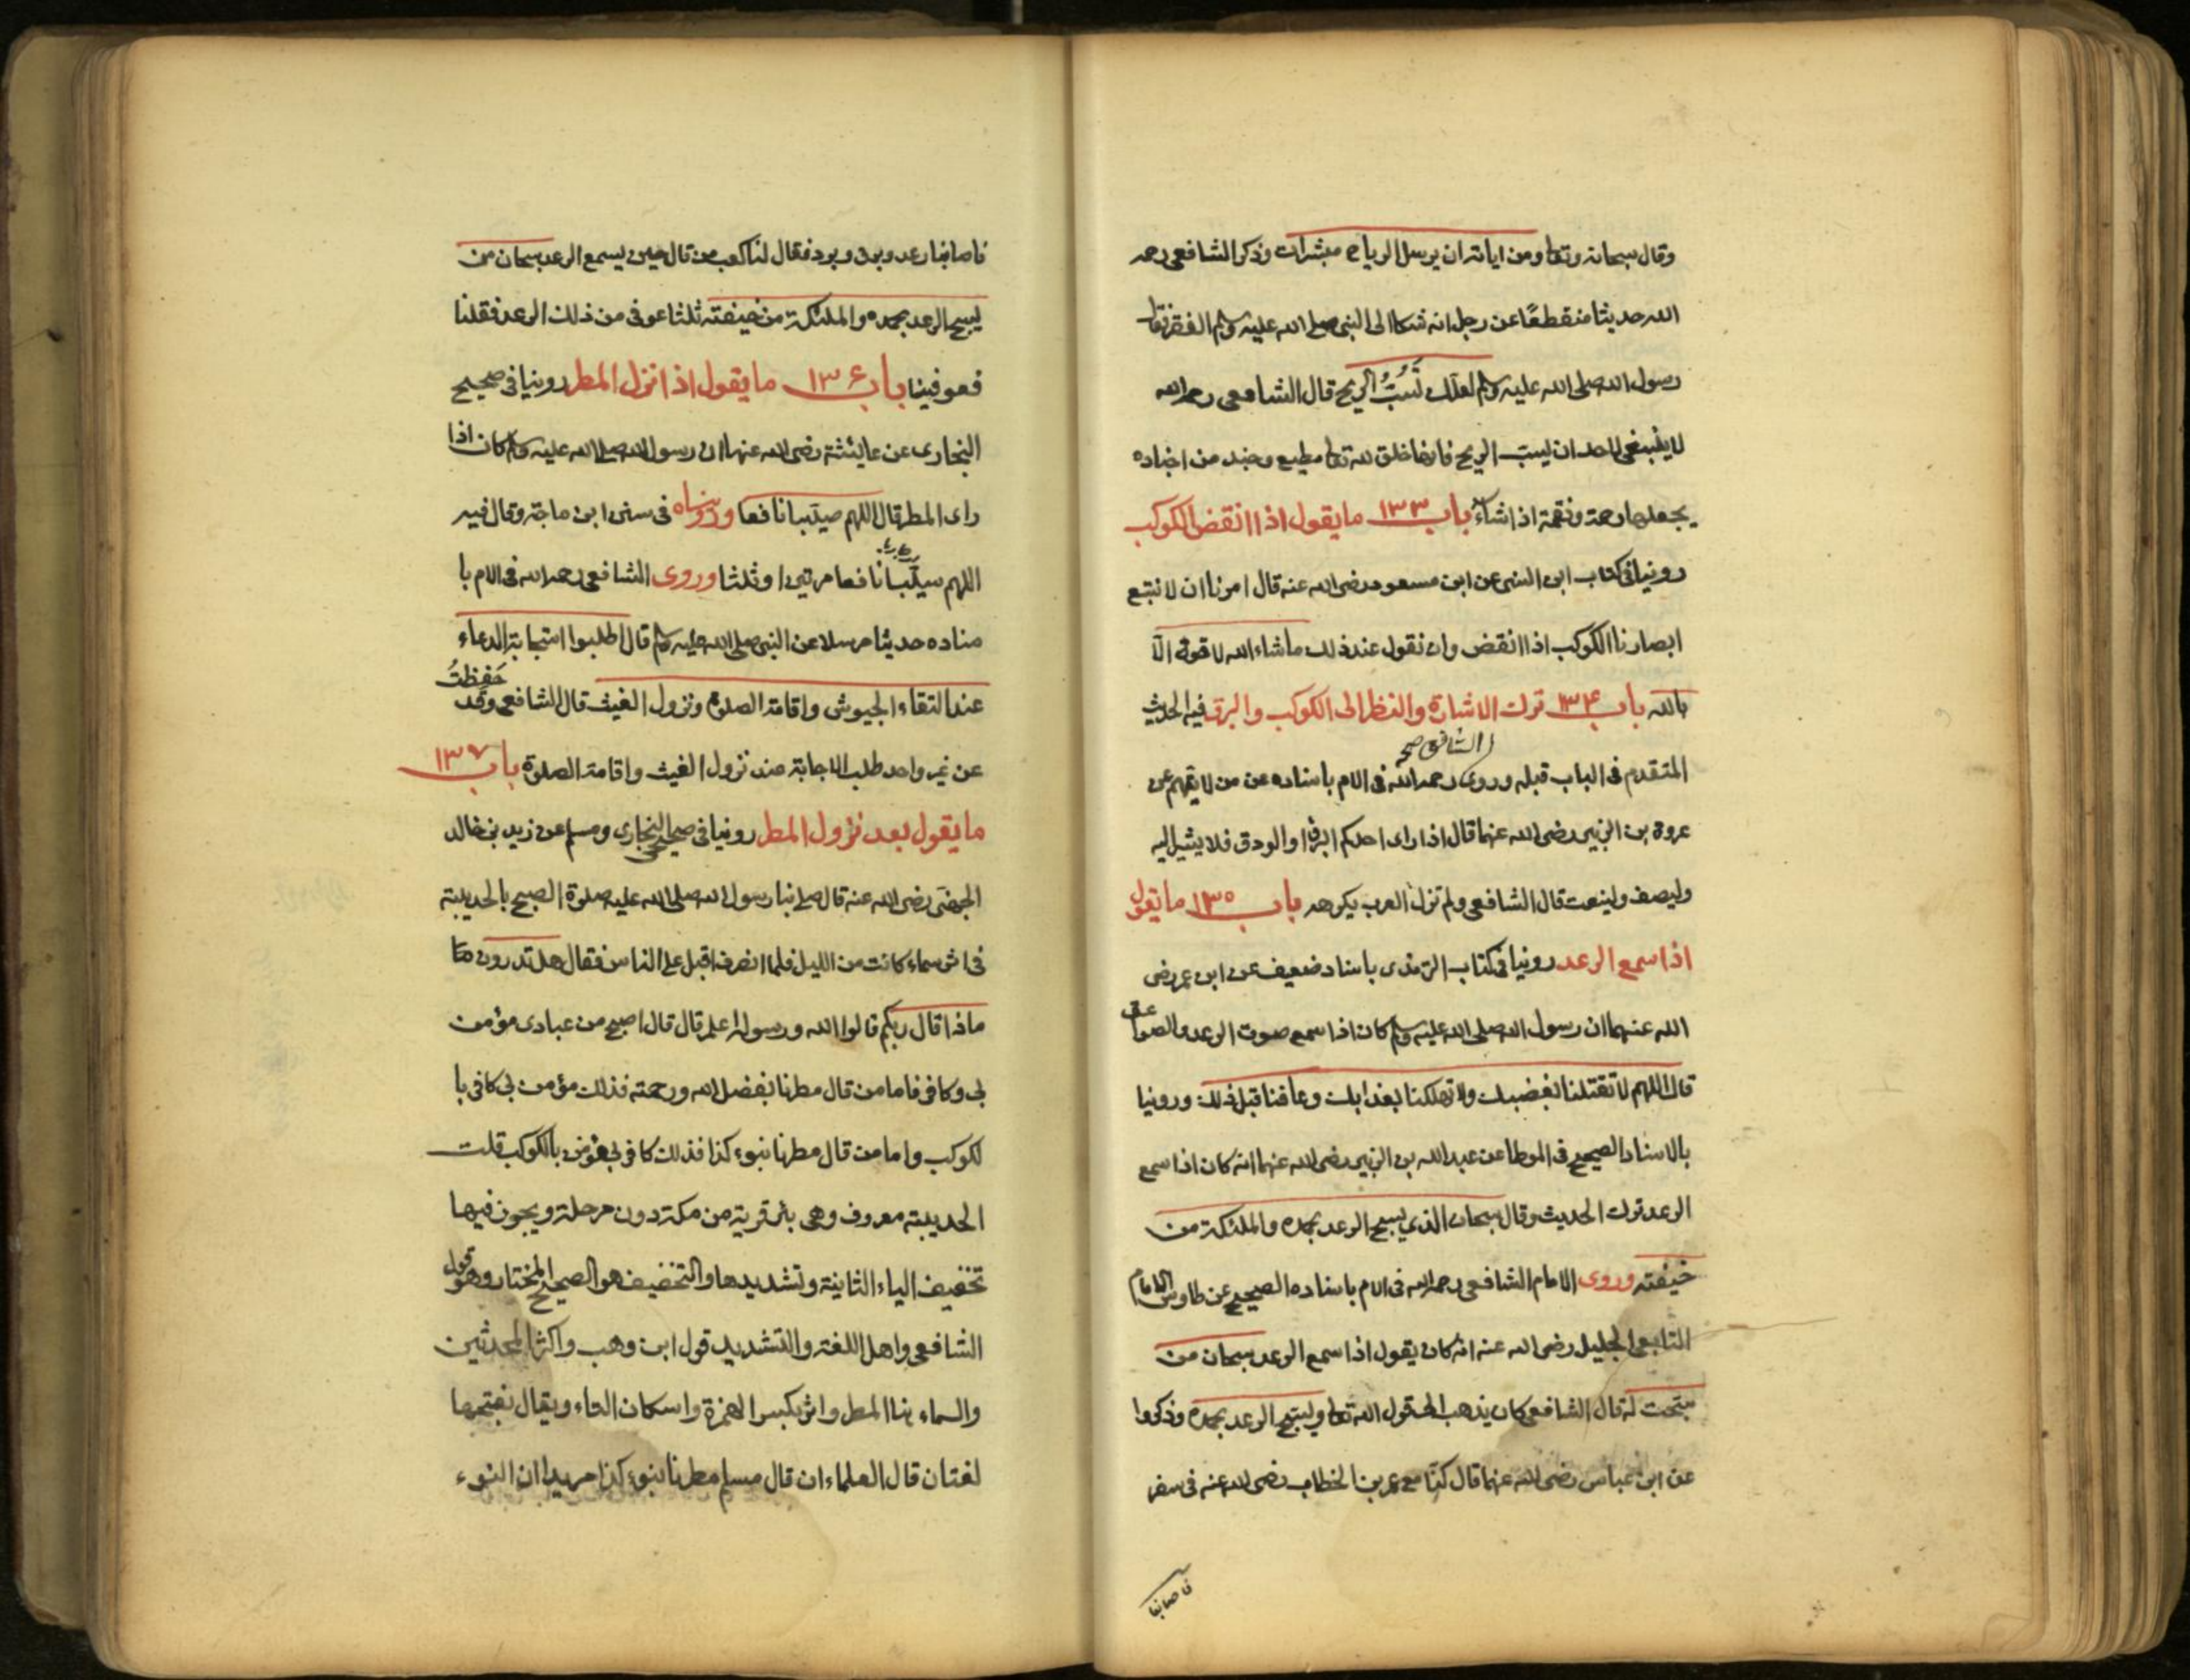 وقال سبحانه وتعا ومن اياته ان يرسل الرياح مبشرات وذكر الشافعى رحمه
الله حديثا منقطعًا عن رجل انه شكا الى النبى صلى الله عليه وسلم الفقر فقال
رسول الله صلى الله عليه وسلم لعلك تَسُبُّ الريح قال الشافعى رحمه الله
لا ينبغى لاحد ان يسبّ الريح فانها خلق لله تعا مطيع وجند من اجناده
يجعلها رحمة ونقمة اذا شاء باب ١٣٣ ما يقول اذا انقض الكوكب
روينا فى كتاب ابن السنى عن ابن مسعود رضى الله عنه قال امرنا ان لا نتبع
ابصارنا الكوكب اذا انقض وان نقول عند ذلك ماشاء الله لا قوة الّا
بالله باب ١٣٤ ترك الاشارة والنظر الى الكوكب والبرق فيه الحديث
المتقدم فى الباب قبله وروى الشافعى صح رحمه الله فى الام باسناده عن من لا يتهم عن
عروة بن الزبير رضى الله عنهما قال اذا راى احدكم البرق او الودق فلا يشير اليه
وليصف ولينعت قال الشافعى ولم تزل العرب يكرهه باب ١٣٥ ما يقول
اذا سمع الرعد روينا فى كتاب الترمذى باسناد ضعيف عن ابن عمر رضى
الله عنهما ان رسول الله صلى الله عليه وسلم كان اذا سمع صوت الرعد والصواعق
قال اللهم لا تقتلنا بغضبك ولا تهلكنا بعذابك وعافنا قبل ذلك وروينا
بالاسناد الصحيح فى الموطا عن عبد الله بن الزبير رضى الله عنهما انه كان اذا سمع
الرعد ترك الحديث وقال سبحان الذى يسبح الرعد بحمده والملئكة من
خيفته وروى الامام الشافعى رحمه الله فى الام باسناده الصحيح عن طاوس الامام
التابعى الجليل رضى الله عنه انه كان يقول اذا سمع الرعد سبحان من
سبّحت له قال الشافعى كان يذهب الى قول الله تعا ويسبّح الرعد بحمده وذكروا
عن ابن عباس رضى الله عنهما قال كنّا مع عمر بن الخطاب رضى الله عنه فى سفر
فاصابنا
فاصابنا رعد وبرق وبرد فقال لنا كعب من قال حين يسمع الرعد سبحان من
يسبح الرعد بحمده والملئكة من خيفته ثلثا عوفى من ذلك الرعد فقلنا
فعوفينا باب ١٣٦ ما يقول اذا نزل المطر روينا فى صحيح
البخارى عن عائشة رضى الله عنها ان رسول الله صلى الله عليه وسلم كان اذا
راى المطر قال اللهم صيّبا نافعا ورويناه فى سنن ابن ماجة وقال فيه
اللهم سيّبا نافعا مرتين او ثلثا وروى الشافعى رحمه الله فى الام با
سناده حديثا مرسلا عن النبى صلى الله عليه وسلم قال اطلبوا استجابة الدعاء
عند التقاء الجيوش واقامة الصلوة ونزول الغيث قال الشافعى وقد حَفِظتُ
عن غير واحد طلب الاجابة عند نزول الغيث واقامة الصلوة باب ١٣٧
ما يقول بعد نزول المطر روينا فى صحيحى البخارى ومسلم عن زيد بن خالد
الجهنى رضى الله عنه قال صلى بنا رسول الله صلى الله عليه صلوة الصبح بالحديبية
فى اثر سماء كانت من الليل فلما انصرف اقبل على الناس فقال هل تدرون
ماذا قال ربكم قالوا الله ورسوله اعلم قال قال اصبح من عبادى مؤمن
بى وكافر فاما من قال مطرنا بفضل الله ورحمته فذلك مؤمن بى كافر با
لكوكب واما من قال مطرنا بنوء كذا فذلك كافر بى مؤمن بالكوكب قلت
الحديبية معروف وهى بئر قريبة من مكة دون مرحلة ويجوز فيها
تخفيف الياء الثانية وتشديدها والتخفيف هو الصحيح المختار وهو قول
الشافعى واهل اللغة والتشديد قول ابن وهب واكثر المحدثين
والسماء هنا المطر واثر بكسر الهمزة واسكان الثاء ويقال بفتحها
لغتان قال العلماء ان قال مسلم مطرنا بنوء كذا مريدا ان النوء